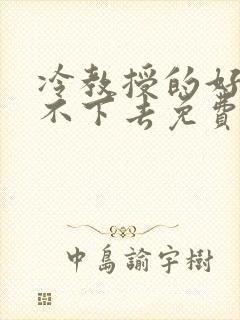 冷教授的好
不下去免费
中島諭宇樹